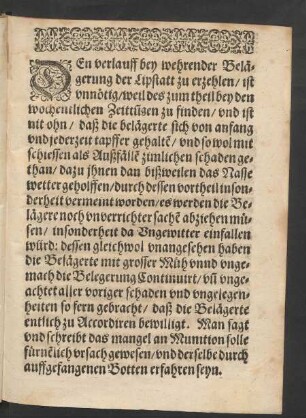 DEn verlauff bey wehrender Belä-
gerung der Lipstatt zu erzehlen/ ist
vnnötig/ weil des zum theil bey den
wochentlichen Zeittũgen zu finden/ vnd ist
nit ohn/ daß die belägerte sich von anfang
vnd jederzeit tapffer gehaltẽ/ vnd so wol mit
schiessen als Außfällẽ zimlichen schaden ge-
than/ dazu jhnen dan bißweilen das Nasse
wetter geholffen/ durch dessen vortheil inson-
derheit vermeint worden/ es werden die Be-
lägere noch vnverrichter sachẽ abziehen mü-
sen/ insonderheit da Vngewitter einfallen
würd: dessen gleichwol vnangesehen haben
die Belägerte mit grosser Müh vnnd vnge-
mach die Belegerung Continuirt/ vñ vnge-
achtet aller voriger schaden vnd vngelegen-
heiten so fern gebracht/ daß die Belägerte
entlich zu Accordiren bewilligt. Man sagt
vnd schreibt das mangel an Munition solle
fürnẽlich vrsach gewesen/ vnd derselbe durch
auffgefangenen Botten erfahren seyn.